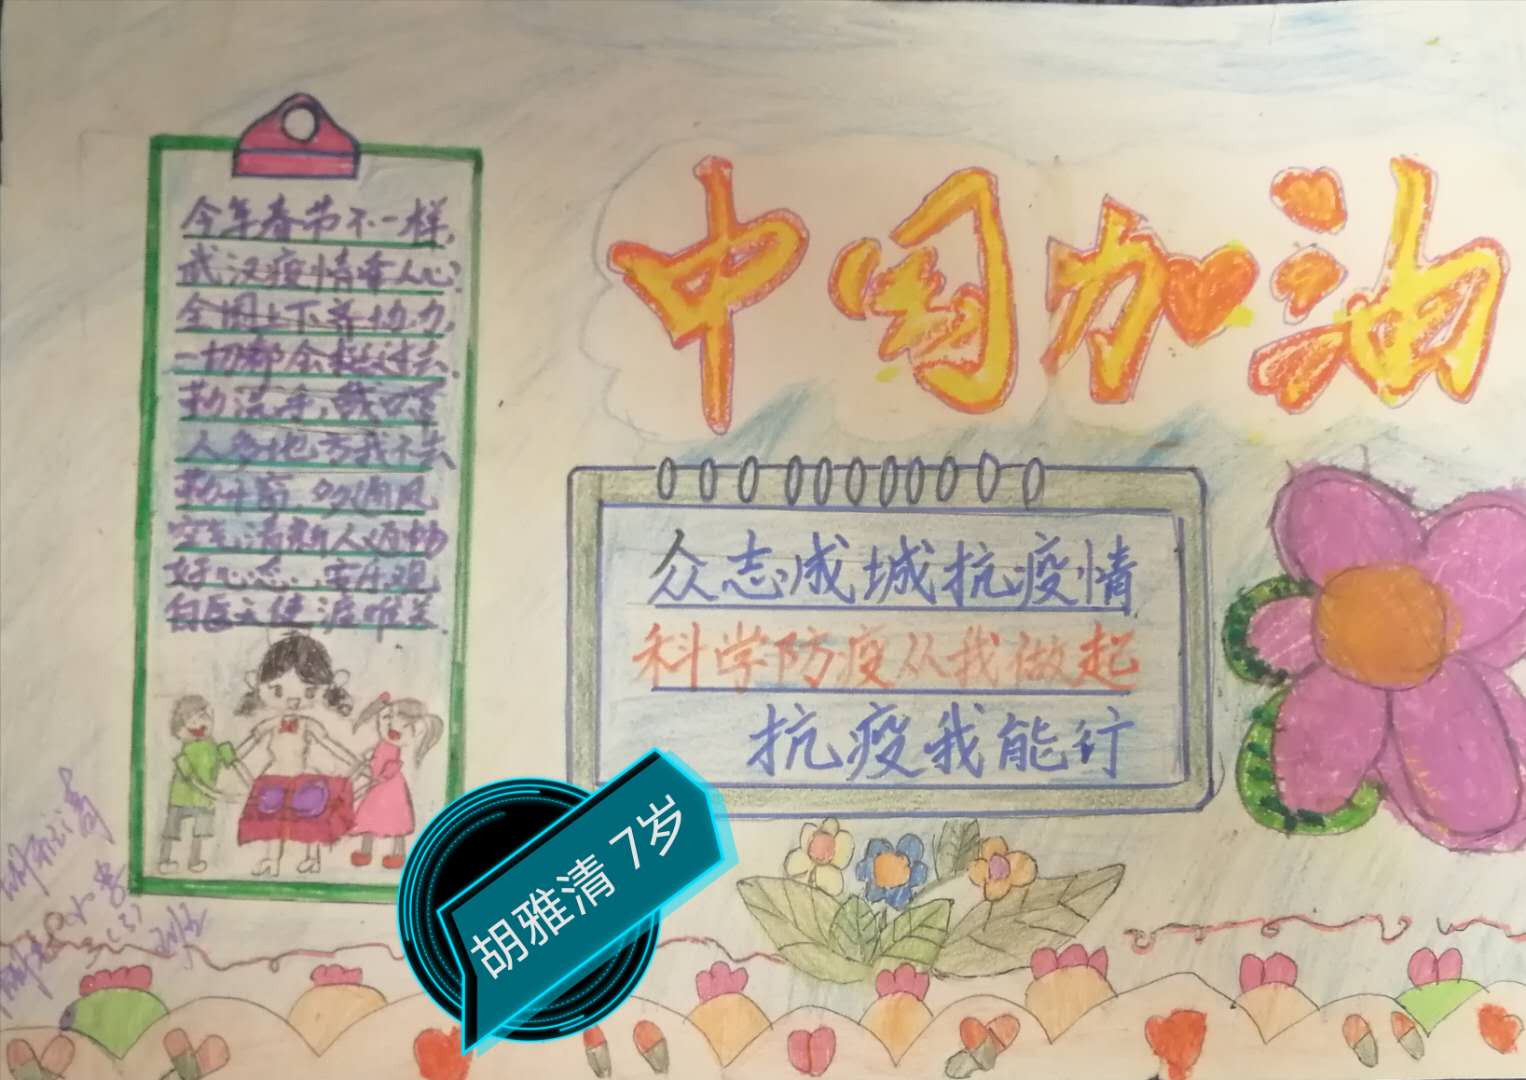 中国加油
今年春节不一样,
武汉疫情牵人心
全国上下齐协力,
一切都会挺过去.
勤洗手,戴口罩
人多地方我不去
勤开窗,多通风
空气清新人人
好心态,
白医天使
众志成城抗疫情
科学防疫从我做起
抗疫我能行
胡雅清 7岁